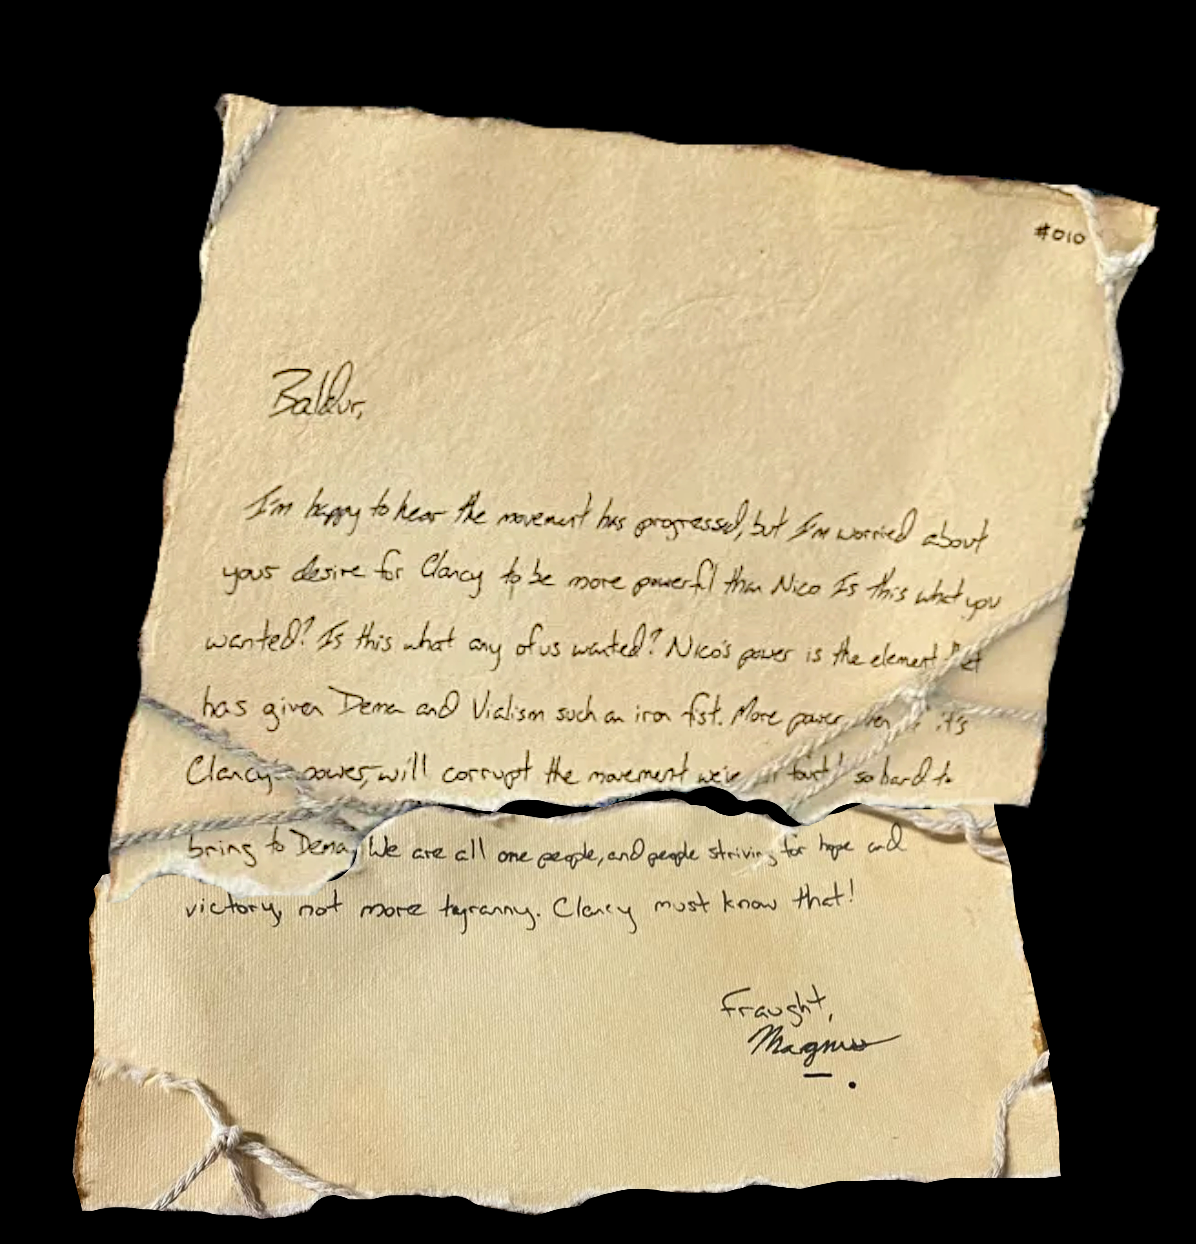 #010
Baldur,
I'm happy to hear the movement has progressed, but I'm worried about
your desire for Clancy to be more powerful than Nico Is this what you
wanted? Is this what any of us wanted? Nico's power is the element
has given Dema and Vialism such an iron fist. More power, it's
Clancy power, will corrupt the movement we've so hard to
bring to Dema, We are all one people, and people striving for hope and
victory, not more tyranny. Clancy must know that!
Fraught,
Magnus